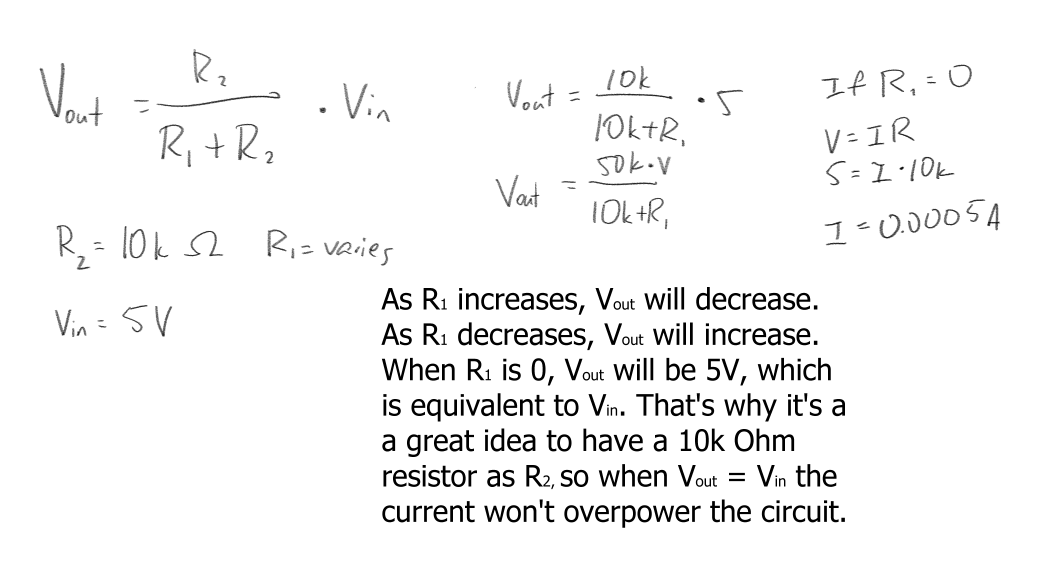 Vout = R2 / (R1 + R2) · Vin
R2 = 10k Ω R1 = varies
Vin = 5V
Vout = 10k / (10k+R1) · 5
Vout = 50k·V / (10k+R1)
If R1 = 0
V = IR
5 = I·10k
I = 0.0005A
As R1 increases, Vout will decrease.
As R1 decreases, Vout will increase.
When R1 is 0, Vout will be 5V, which
is equivalent to Vin. That's why it's a
a great idea to have a 10k Ohm
resistor as R2, so when Vout = Vin the
current won't overpower the circuit.